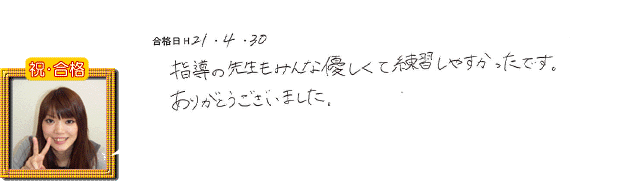 合格日 H21.4.30
祝・合格
指導の先生もみんな優しくて練習しやすかったです。
ありがとうございました。